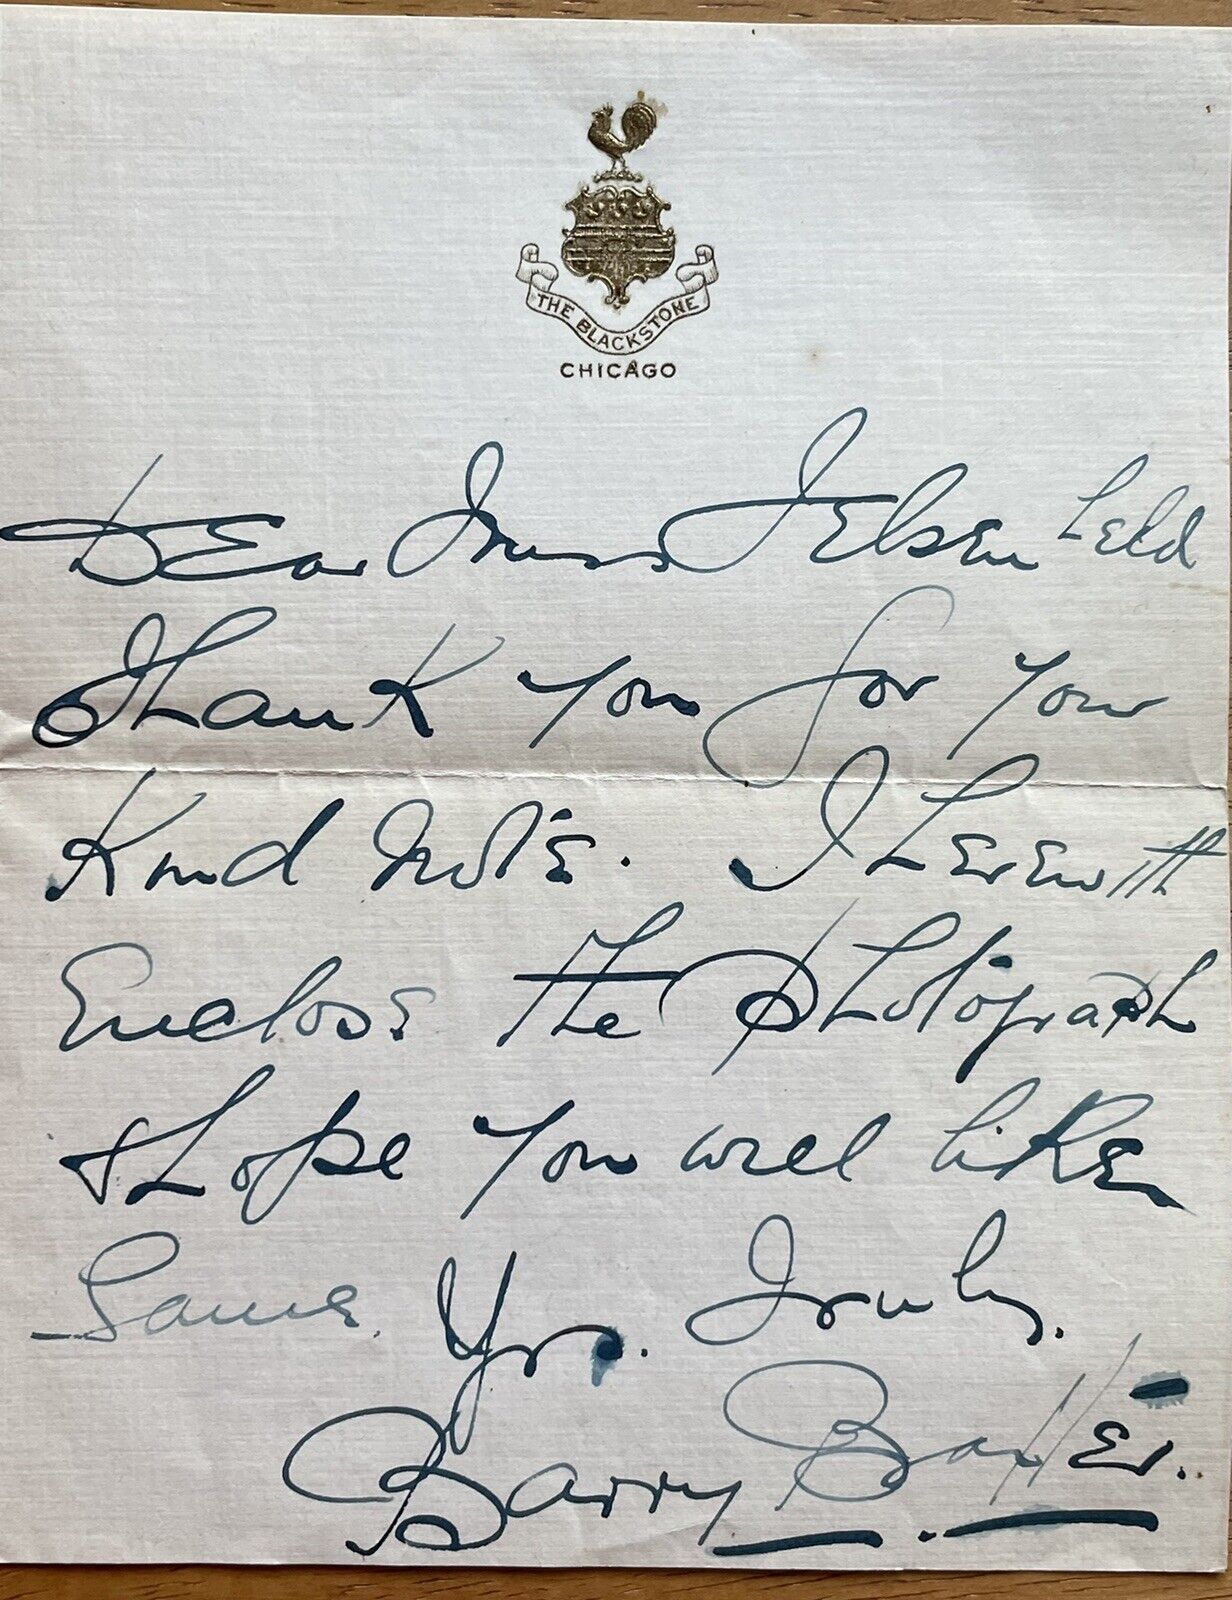 THE BLACKSTONE
CHICAGO
Dear Miss Jelsen Leld
Thank you for your
Kind Note. I herewith
Enclose the photograph
& hope you will like
Same. Yrs. Truly.
Barry Baxter.